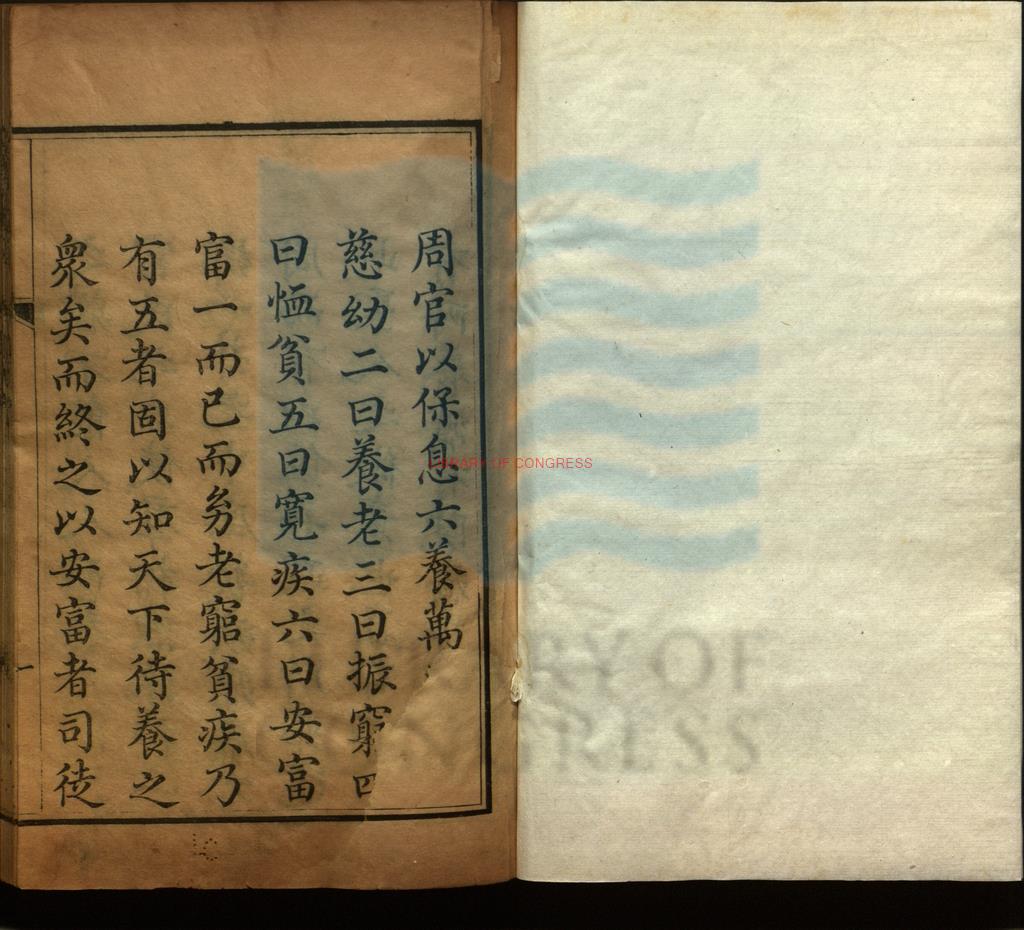 周官以保息六養萬
慈幼二曰養老三曰振窮四
曰恤貧五曰寬疾六曰安富
富一而已而㓜老窮貧疾乃
有五者固以知天下待養之
衆矣而終之以安富者司徒
LIBRARY OF CONGRESS